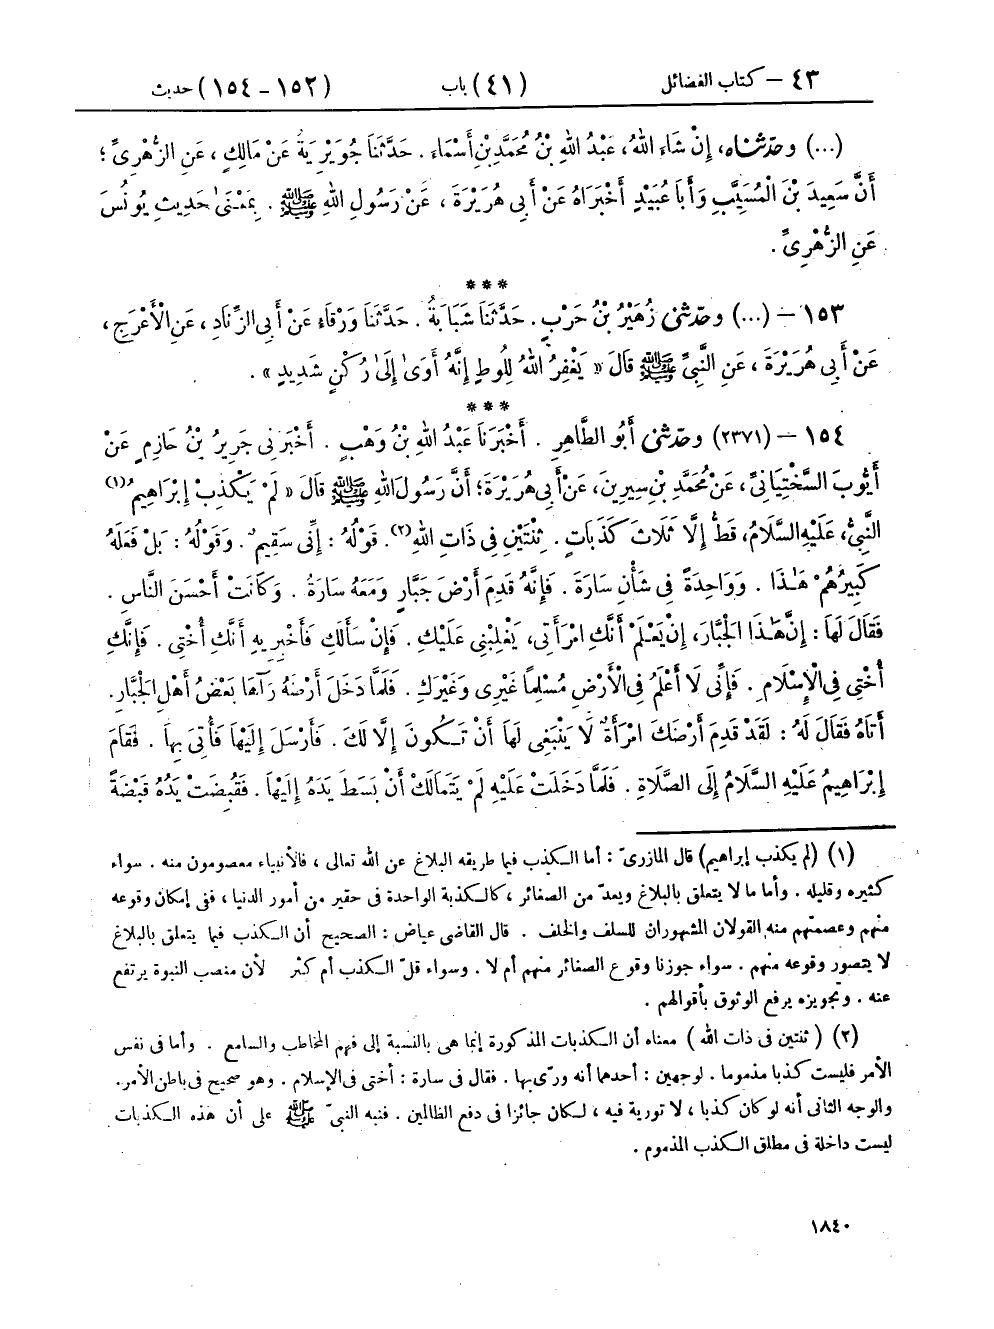 ٤٣ – كتاب الفضائل (٤١) باب (١٥٢ – ١٥٤) حديث
(...) وحَدَّثَنَاه، إِنْ شَاءَ اللهُ، عَبْدُ اللهِ بْنُ مُحَمَّدِ بْنِ أَسْمَاءَ. حَدَّثَنَا جُوَيْرِيَةُ عَنْ مَالِكٍ، عَنِ الزُّهْرِيِّ؛
أَنَّ سَعِيدَ بْنَ الْمُسَيَّبِ وَأَبَا عُبَيْدٍ أَخْبَرَاهُ عَنْ أَبِي هُرَيْرَةَ، عَنْ رَسُولِ اللهِ ﷺ. بِمَعْنَىٰ حَدِيثِ يُونُسَ
عَنِ الزُّهْرِيِّ.
***
١٥٣ – (...) وحَدَّثَنِي زُهَيْرُ بْنُ حَرْبٍ. حَدَّثَنَا شَبَابَةُ. حَدَّثَنَا وَرْقَاءُ عَنْ أَبِي الزِّنَادِ، عَنِ الْأَعْرَجِ،
عَنْ أَبِي هُرَيْرَةَ، عَنِ النَّبِيِّ ﷺ قَالَ «يَغْفِرُ اللهُ لِلُوطٍ إِنَّهُ أَوَىٰ إِلَىٰ رُكْنٍ شَدِيدٍ».
***
١٥٤ – (٢٣٧١) وحَدَّثَنِي أَبُو الطَّاهِرِ. أَخْبَرَنَا عَبْدُ اللهِ بْنُ وَهْبٍ. أَخْبَرَنِي جَرِيرُ بْنُ حَازِمٍ عَنْ
أَيُّوبَ السَّخْتِيَانِيِّ، عَنْ مُحَمَّدِ بْنِ سِيرِينَ، عَنْ أَبِي هُرَيْرَةَ؛ أَنَّ رَسُولَ اللهِ ﷺ قَالَ «لَمْ يَكْذِبْ إِبْرَاهِيمُ(١)
النَّبِيُّ، عَلَيْهِ السَّلَامُ، قَطُّ إِلَّا ثَلَاثَ كَذَبَاتٍ. ثِنْتَيْنِ فِي ذَاتِ اللهِ(٢). قَوْلُهُ: إِنِّي سَقِيمٌ. وَقَوْلُهُ: بَلْ فَعَلَهُ
كَبِيرُهُمْ هَٰذَا. وَوَاحِدَةً فِي شَأْنِ سَارَةَ. فَإِنَّهُ قَدِمَ أَرْضَ جَبَّارٍ وَمَعَهُ سَارَةُ. وَكَانَتْ أَحْسَنَ النَّاسِ.
فَقَالَ لَهَا: إِنَّ هَٰذَا الْجَبَّارَ، إِنْ يَعْلَمْ أَنَّكِ امْرَأَتِي، يَغْلِبْنِي عَلَيْكِ. فَإِنْ سَأَلَكِ فَأَخْبِرِيهِ أَنَّكِ أُخْتِي. فَإِنَّكِ
أُخْتِي فِي الْإِسْلَامِ. فَإِنِّي لَا أَعْلَمُ فِي الْأَرْضِ مُسْلِمًا غَيْرِي وَغَيْرَكِ. فَلَمَّا دَخَلَ أَرْضَهُ رَآهَا بَعْضُ أَهْلِ الْجَبَّارِ.
أَتَاهُ فَقَالَ لَهُ: لَقَدْ قَدِمَ أَرْضَكَ امْرَأَةٌ لَا يَنْبَغِي لَهَا أَنْ تَكُونَ إِلَّا لَكَ. فَأَرْسَلَ إِلَيْهَا فَأُتِيَ بِهَا. فَقَامَ
إِبْرَاهِيمُ عَلَيْهِ السَّلَامُ إِلَى الصَّلَاةِ. فَلَمَّا دَخَلَتْ عَلَيْهِ لَمْ يَتَمَالَكْ أَنْ بَسَطَ يَدَهُ إِلَيْهَا. فَقُبِضَتْ يَدُهُ قَبْضَةً
(١) (لم يكذب إبراهيم) قال المازرىّ: أما الكذب فيما طريقه البلاغ عن الله تعالى، فالأنبياء معصومون منه. سواء
كثيره وقليله. وأما ما لا يتعلق بالبلاغ ويعدّ من الصغائر، كالكذبة الواحدة فى حقير من أمور الدنيا، ففى إمكان وقوعه
منهم وعصمتهم منه، القولان المشهوران للسلف والخلف. قال القاضى عياض: الصحيح أن الكذب فيما يتعلق بالبلاغ
لا يتصور وقوعه منهم. سواء جوزنا وقوع الصغائر منهم أم لا. وسواء قلّ الكذب أم كثر لأن منصب النبوة يرتفع
عنه. وتجويزه يرفع الوثوق بأقوالهم.
(٢) (ثنتين فى ذات الله) معناه أن الكذبات المذكورة إنما هى بالنسبة إلى فهم المخاطب والسامع. وأما فى نفس
الأمر فليست كذبا مذموما. لوجهين: أحدهما أنه ورّى بها. فقال فى سارة: أختى فى الإسلام. وهو صحيح فى باطن الأمر.
والوجه الثانى أنه لو كان كذبا، لا تورية فيه، لكان جائزا فى دفع الظالمين. فنبه النبىّ ﷺ على أن هذه الكذبات
ليست داخلة فى مطلق الكذب المذموم.
١٨٤٠